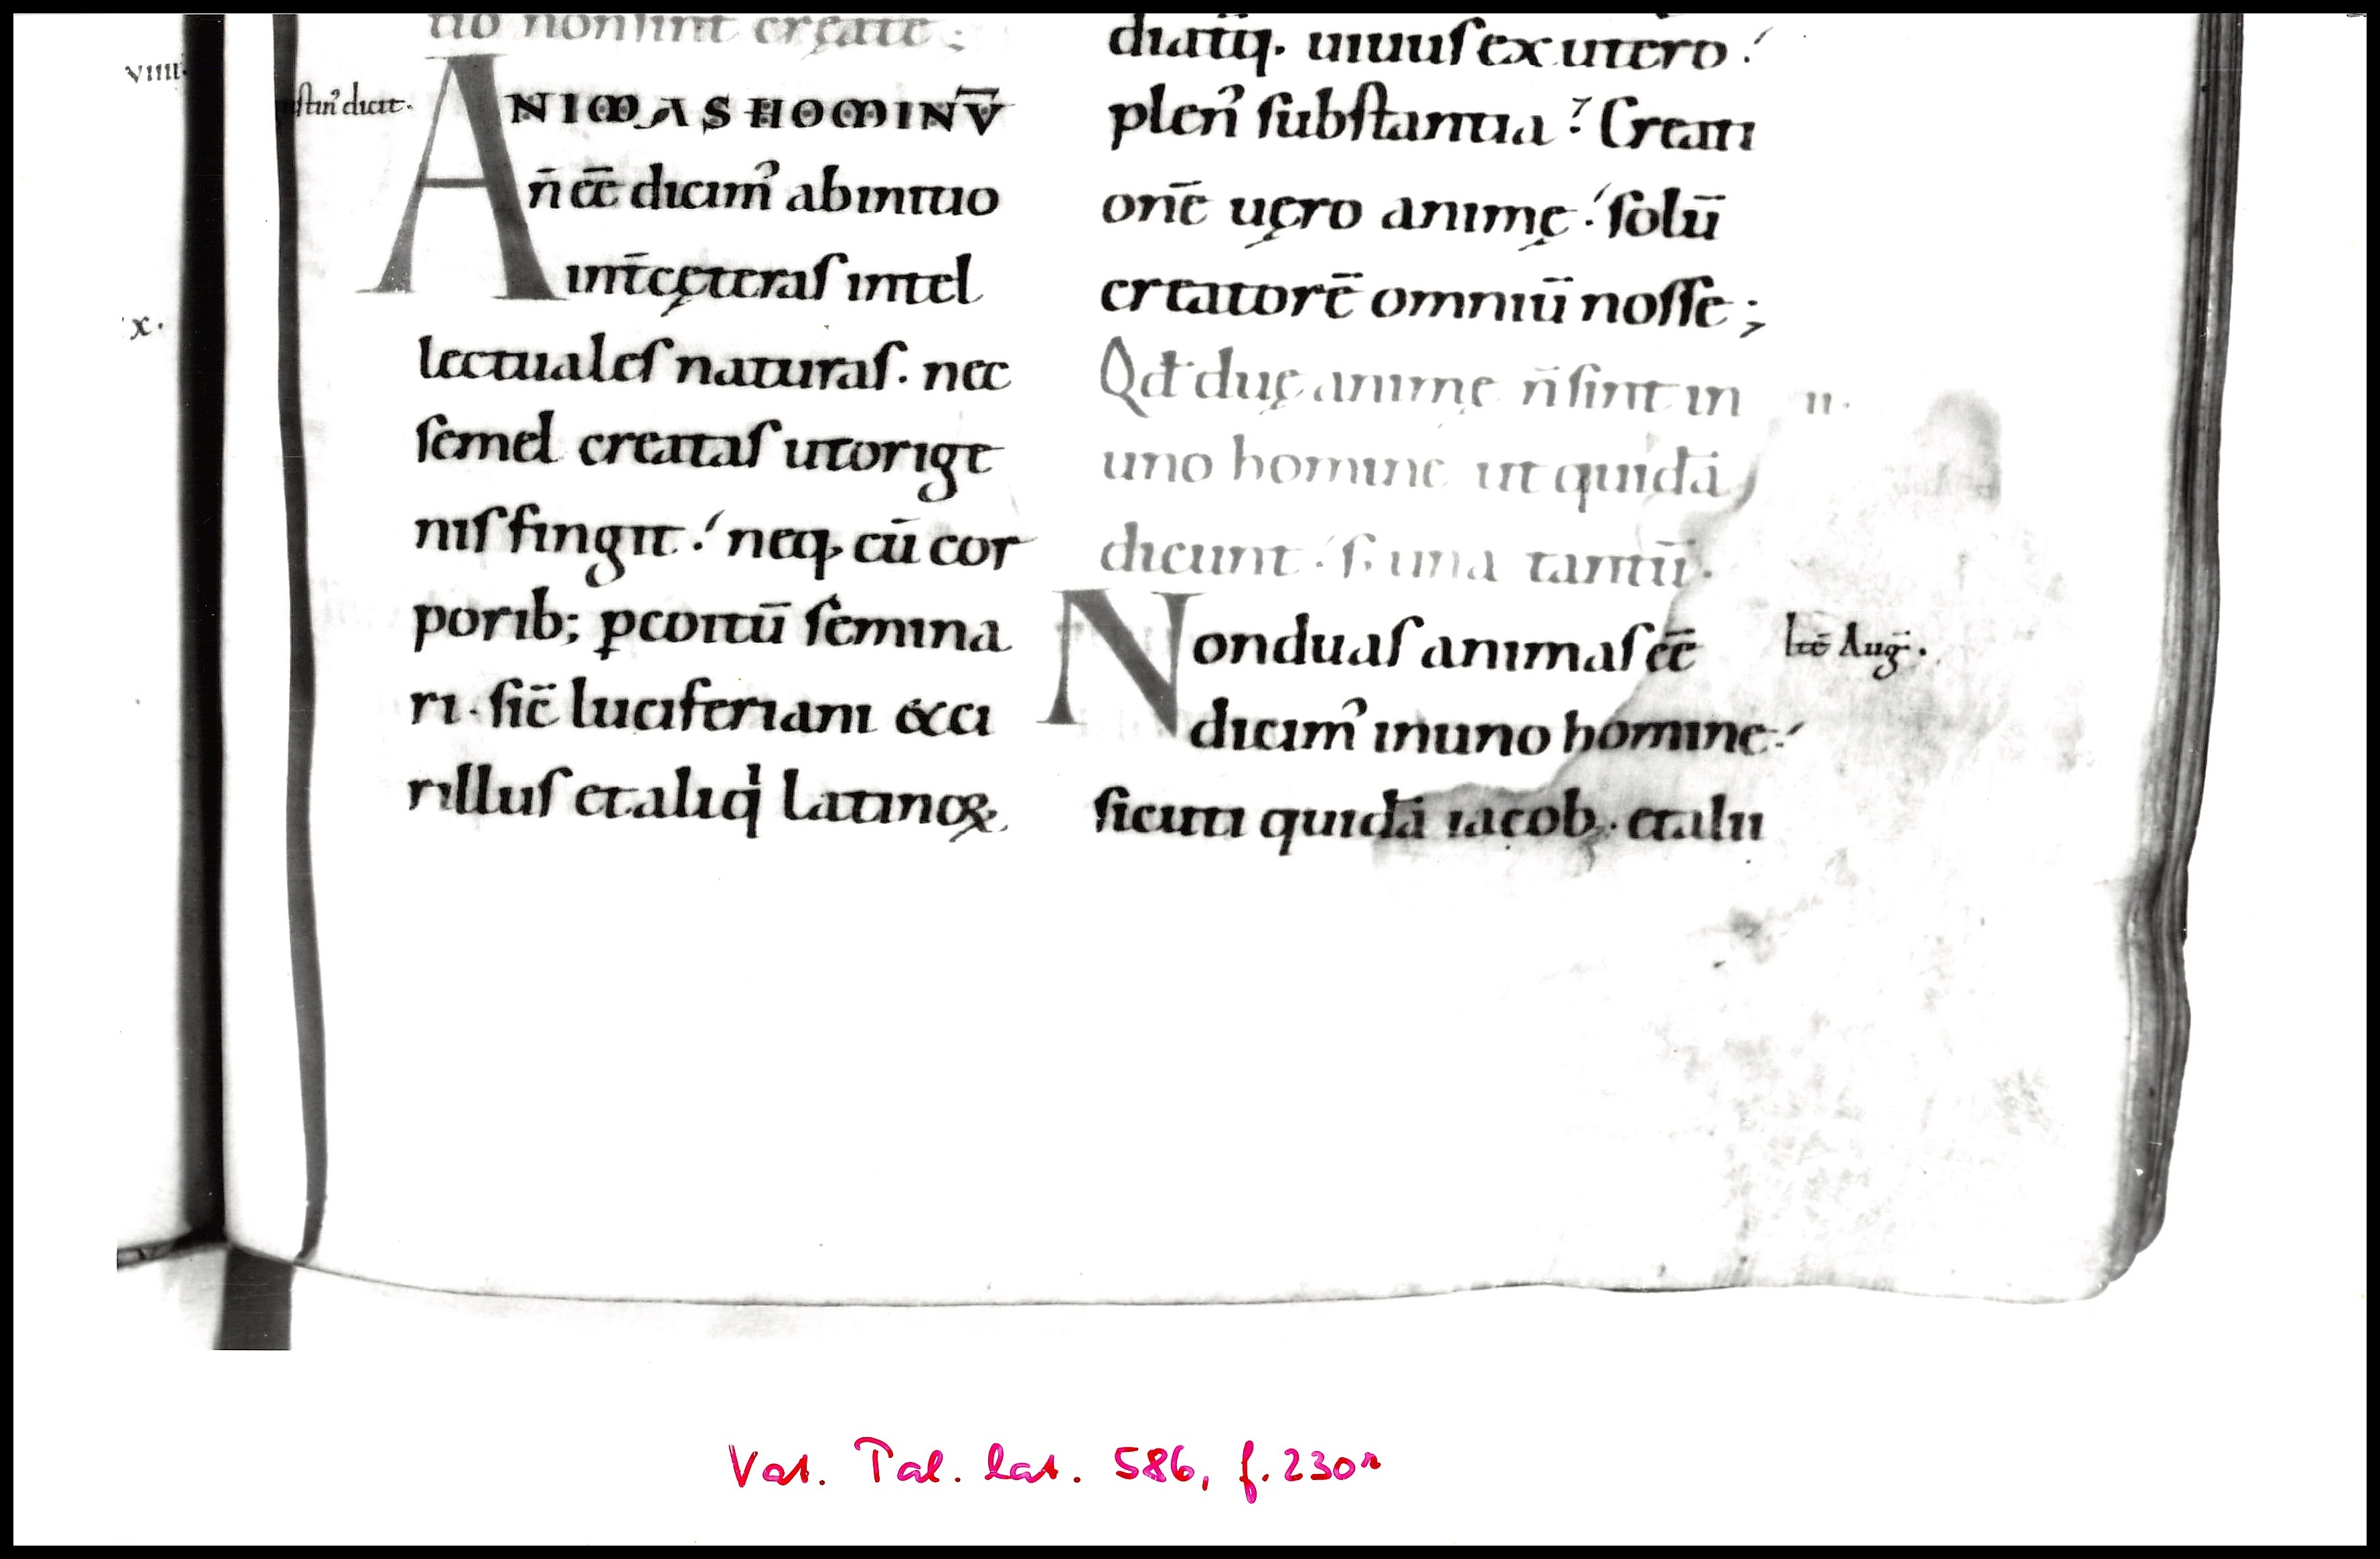 tio non sint creatę;
viiii.
ANIMAS HOMINV̄
n̄ eē dicim᾿ ab initio
int̄ cęteras intel
x.
lectuales naturas. nec
semel creatas ut orige
nis fingit: neq; cū cor
porib; ꝑ coitū semina
ri. sic̄ luciferiani & ci
rillus et aliq̇ latinoꝝ
diatiq. uiuus ex utero:
plen᾿ substantia? Creati
onē uęro animę: solū
creatorē omniū nosse;
Qđ duę animę n̄ sint in ii.
uno homine ut quidā
dicunt: s; una tantū.
Non duas animas eē
Itē Auḡ.
dicim᾿ in uno homine:
sicuti quidā iacob. et alii
Vat. Pal. lat. 586, f. 230r